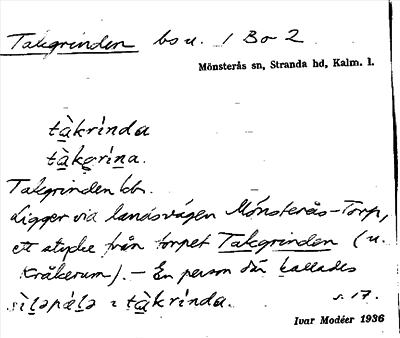 Takgrinden bs u. 1 Bo 2
Mönsterås sn, Stranda hd, Kalm. l.
tàkrínda
tàkgrína.
Takgrinden bb.
Ligger vid landsvägen Mönsterås-Torp,
ett stycke från torpet Takgrinden (u.
Kråkerum). - En person där kallades
i tàkrínda. s. 17.
Ivar Modéer 1936